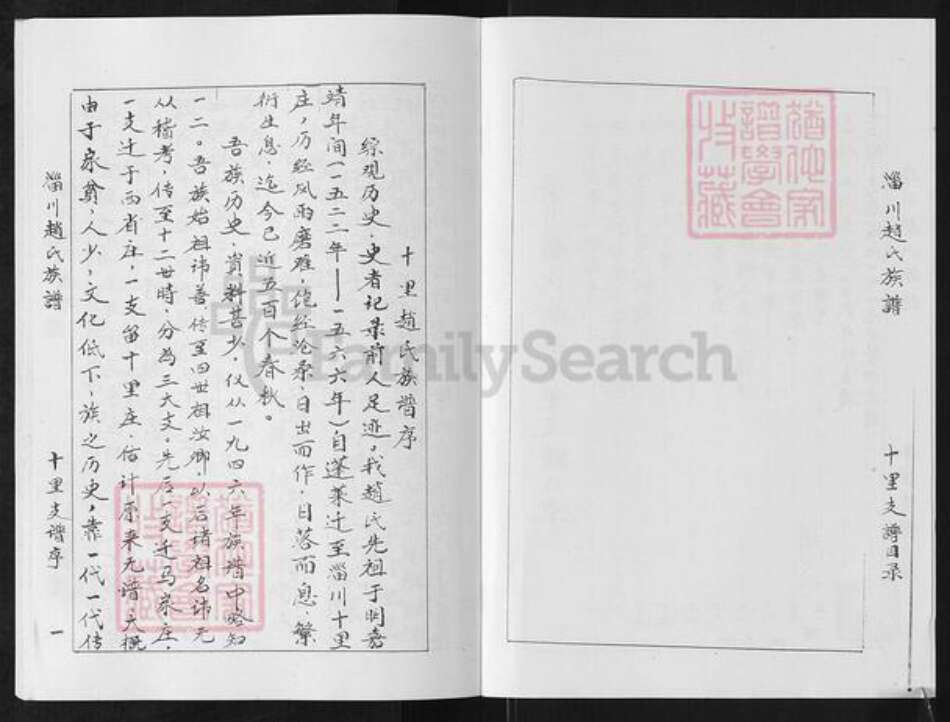 淄川趙氏族譜
十里支譜目录
十里趙氏族谱序
综观历史，史者记录前人足迹。我趙氏先祖于明嘉
靖年间(一五二二年——一五六六年)自蓬莱迁至淄川十里
庄，历经风雨磨难，饱经沧桑，日出而作，日落而息，繁
衍生息，迄今已近五百个春秋。
吾族历史，資料甚少，仅从一九四六年族谱中略知
一二。吾族始祖讳善传至四世祖汝卿，以后诸祖名讳无
从稽考，传至十二世時，分為三大支。先后一支迁马家庄，
一支迁于西省庄，一支留十里庄，估计原来无谱，大概
由于家贫，人少，文化低下，族之历史，靠一代一代传
淄川趙氏族譜
十里支谱序
一
FamilySearch